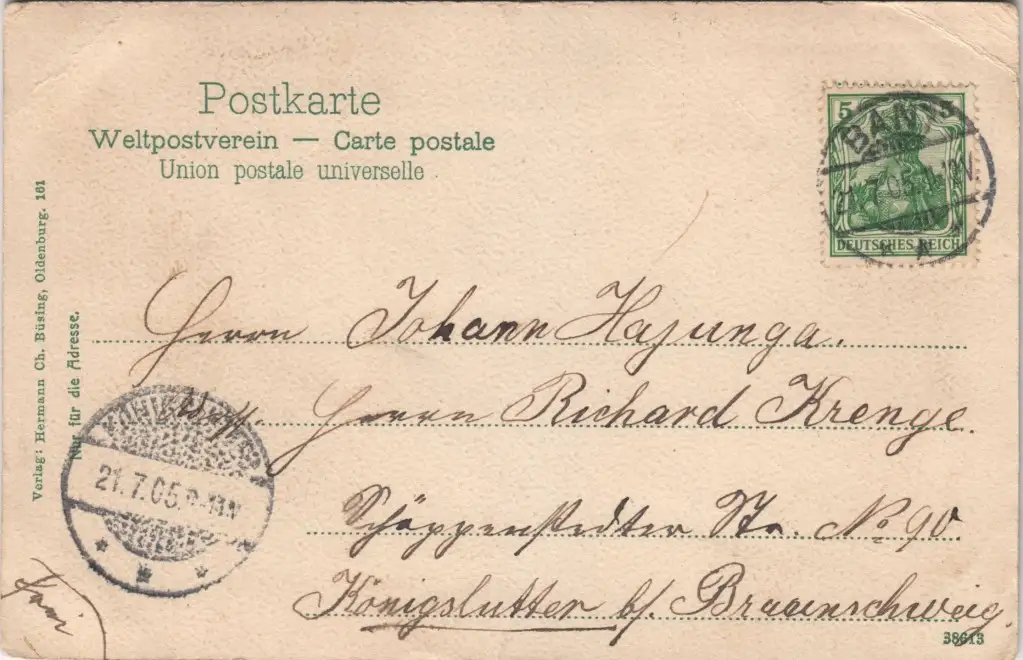 Postkarte
Weltpostverein — Carte postale
Union postale universelle
5
DEUTSCHES REICH
21.7.05
Verlag: Hermann Ch. Büsing, Oldenburg. 161
Nur für die Adresse.
Herrn Johann Hajunga.
Herrn Richard Krenge.
Schöppenstedter Str. No 90
Königslutter b/. Braunschweig.
21.7.05
38613